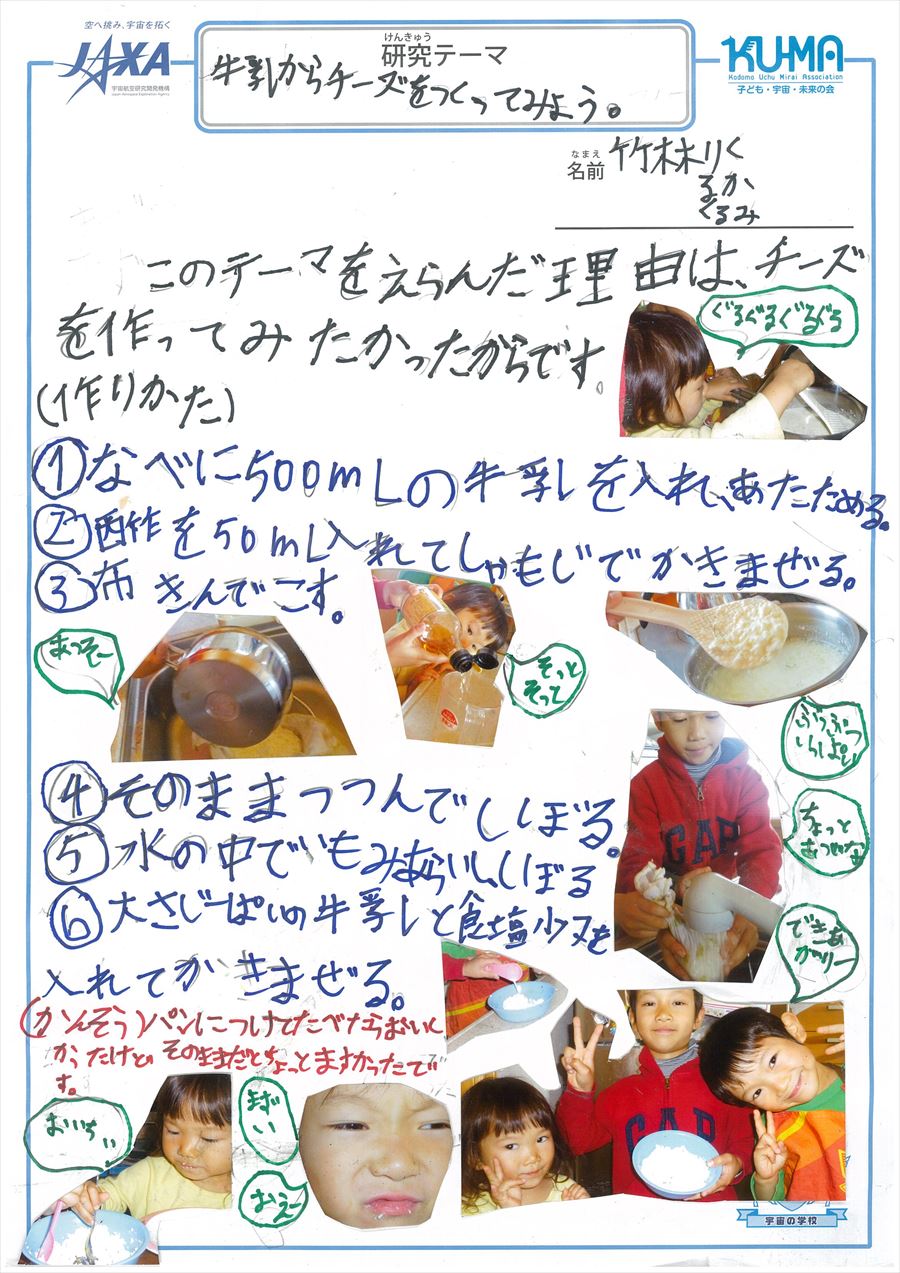 空へ挑み、宇宙を拓く
JAXA
宇宙航空研究開発機構
Japan Aerospace Exploration Agency
けんきゅう
研究テーマ
牛乳からチーズをつくってみよう。
KU-MA
Kodomo Uchu Mirai Association
子ども・宇宙・未来の会
なまえ
名前 竹林りく
るか
くるみ
このテーマをえらんだ理由は、チーズ
を作ってみたかったからです。
ぐるぐるぐるぐる
(作りかた)
①なべに500mLの牛乳を入れ、あたためる。
②酢を50mL入れてしゃもじでかきまぜる。
③布きんでこす。
そっと
そっと
④そのままつつんでしぼる。
⑤水の中でもみあらいし、しぼる
⑥大さじ一ぱいの牛乳と食塩少々を
入れてかきまぜる。
できあ
がりー
(かんそう)パンにつけてたべたらおいし
かったけど、そのままだとちょっとまずかったで
す。
おいちぃ
まずい
おえー
GAP
GAP
宇宙の学校